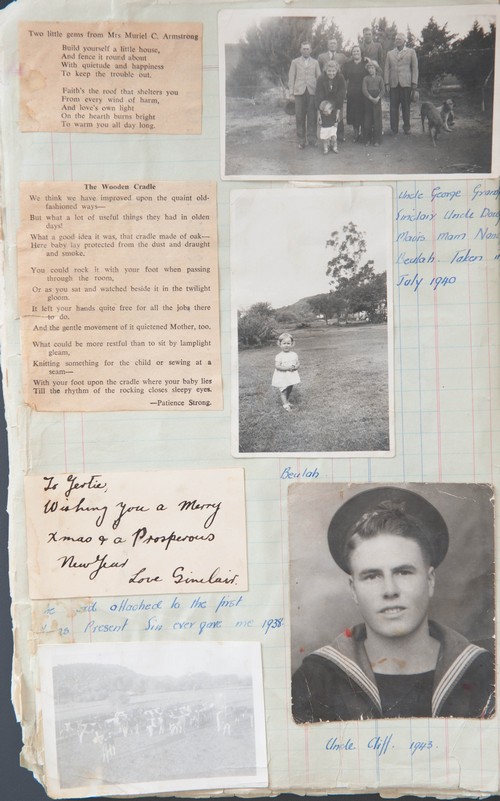 Two little gems from Mrs Muriel C. Armstrong
Build yourself a little house,
And fence it round about
With quietude and happiness
To keep the trouble out.
Faith's the roof that shelters you
From every wind of harm,
And love's own light
On the hearth burns bright
To warm you all day long.
The Wooden Cradle
We think we have improved upon the quaint old-
fashioned ways—
But what a lot of useful things they had in olden
days!
What a good idea it was, that cradle made of oak—
Here baby lay protected from the dust and draught
and smoke.
You could rock it with your foot when passing
through the room,
Or as you sat and watched beside it in the twilight
gloom.
It left your hands quite free for all the jobs there
to do.
And the gentle movement of it quietened Mother, too.
What could be more restful than to sit by lamplight
gleam,
Knitting something for the child or sewing at a
seam—
With your foot upon the cradle where your baby lies
Till the rhythm of the rocking closes sleepy eyes.
—Patience Strong.
Uncle George
Sinclair Uncle
Mavis Mam
Beulah. Taken
July 1940
Beulah
To Gertie,
Wishing You a Merry
Xmas & a Prosperous
New Year
Love Sinclair.
attached to the first
Present Sin ever gave me 1938
Uncle Cliff. 1943.